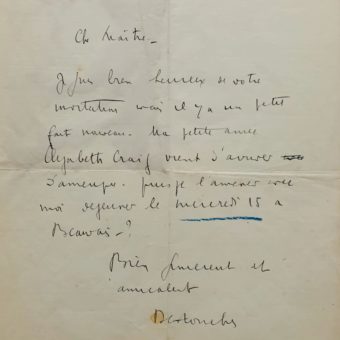 Ch Maître –
Je suis bien heureux de votre
invitation mais il y a un petit
fait nouveau. Ma petite amie
Elizabeth Craig vient d'arriver
d'amerique. puis je l'amener avec
moi dejeuner le mercredi 15 a
Beauvais – ?
Bien sincerement et
amicalent
Destouches